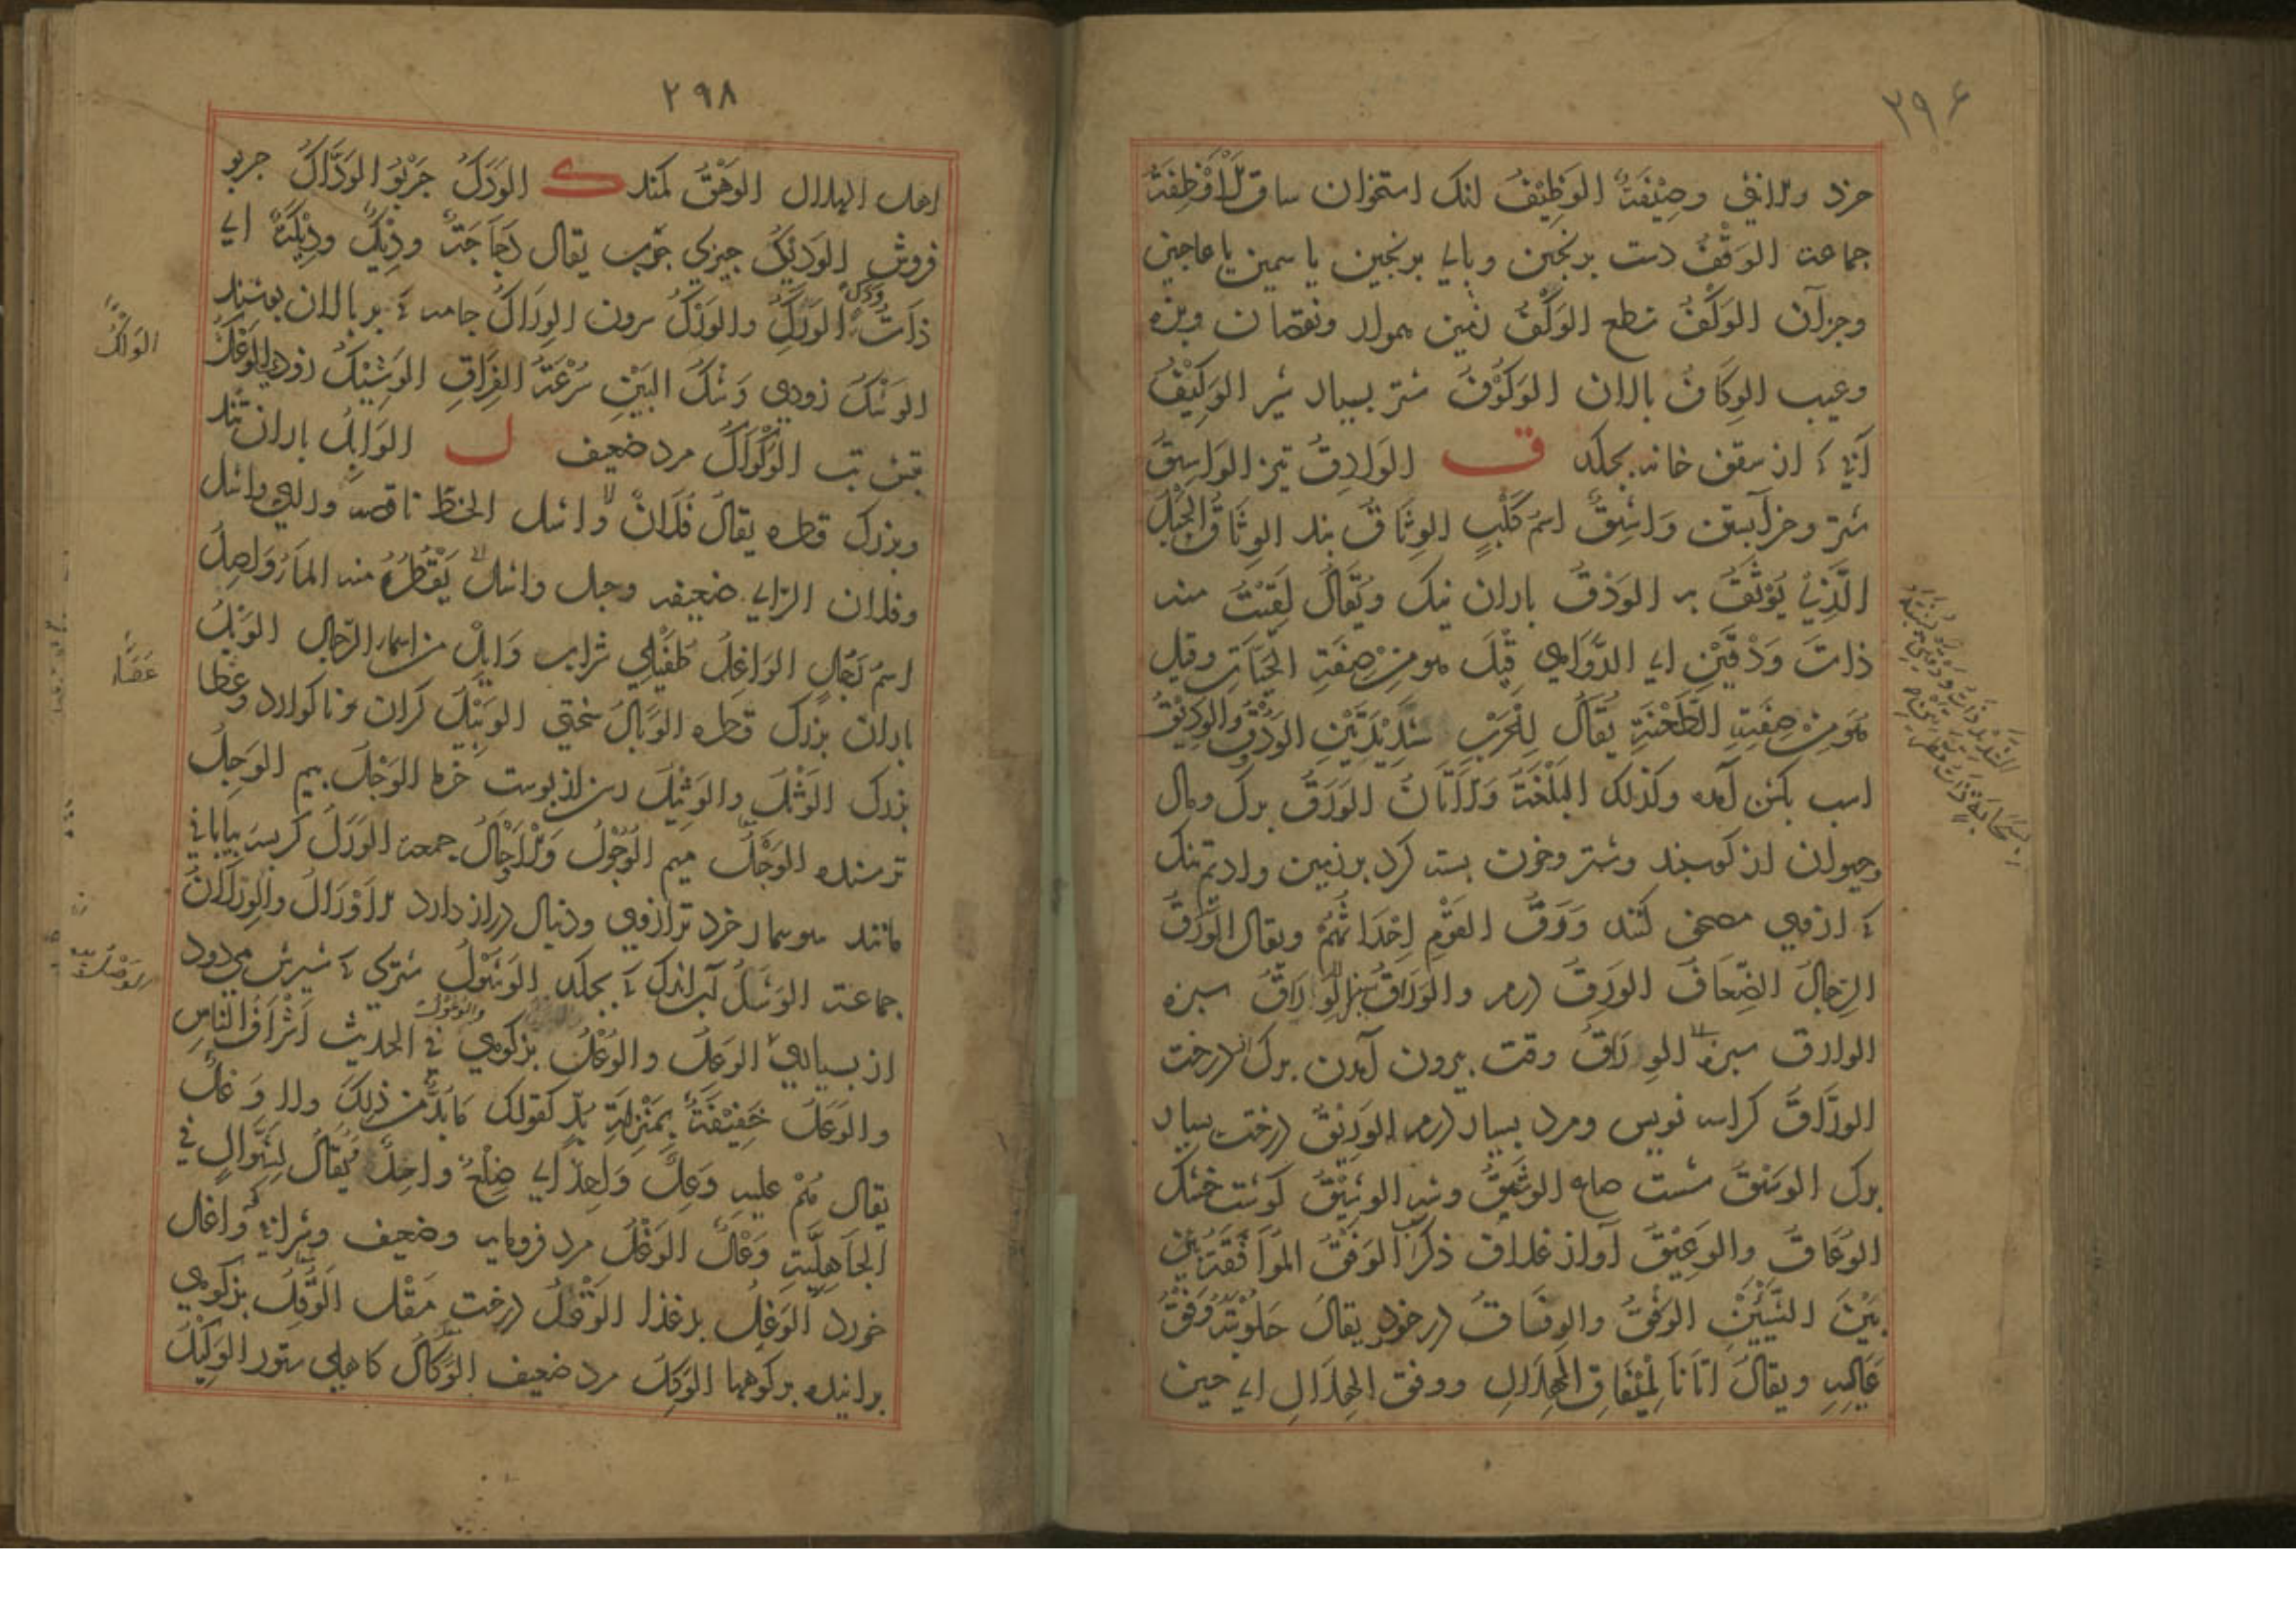 ۲۹۶
خرد والانثی وصیْفَةٌ الوَظِیْفُ لنک استخوان ساق الاَوْظِفَةُ
جماعة الوَقْفُ دست برنجین وپای برنجین یاسمین یا عاجین
وجز آن الوَکَفُ نطع الوَکْفُ زمین هموار ونقصان وبزه
وعیب الوِکَافُ پالان الوَکُوْفُ شتر بسیار شیر الوَکِیْفُ
آنچ از سقف خانه بچکد ق الوَادِقُ تیز الوَاسِقُ
شتر وخر آبستن وَاشِقٌ اسمُ کَلْبٍ الوِثَاقُ بند الوِثَاقُ الحَبْلُ
الَّذِیْ یُوْثَقُ به الوَدْقُ باران نیک ویُقَالُ لَقِیْتُ منه
ذاتَ وَدْقَیْنِ ای الدَّوَاهِی قِیْلَ هو مِنْ صِفَةِ الحَیَّاتِ وقیل
هُوَ مِنْ صِفَةِ الطَّعْنَةِ یُقَالُ لِلْحَرْبِ شَدِیْدَتَیْنِ الوَدُوْقُ والوَدِیْقُ
اسب بکشن آمده وکذلک البَغْلَةُ والاَتَانُ الوَرَقُ برک ومال
وحیوان از کوسبند وشتر وخون بسته کرد بر زمین وادیم تنک
که از وی مصحف کنند وَرَقُ القَوْمِ اَحْدَاثُهُمْ ویقال الوَرَقُ
الرِّجَالُ الضِّعَافُ الوَرِقُ درم والوَرَاقُ الوَرَاقُ سبزه
الوارق سبز الوِرَاقُ وقت بیرون آمدن برک درخت
الورَّاقُ کراسه نویس ومرد بسیار درم الوَرِیْقُ درخت بسیار
برک الوَسْقُ شست صاع الوَشِیْقُ وشه الوَشِیْقُ کوشت خشک
الوُعَاقُ والوَعِیْقُ آواز غلاف ذکر اسب الوَفْقُ المُوَافَقَةُ
بَیْنَ الشَّیْئَیْنِ الوَفْقُ والوِفَاقُ درخور یقال حَلُوْبَتُهُ وَفْقُ
عَیَالِهِ ویقالُ اَتَانَا لِمِیْفَاقِ الهِلَالِ ووفق الهلَالِ ای حین
۲۹۸
اهل الهلال الوَهَقُ کمند ک الوَدَکُ چربو الوَدَّاکُ چربو
فروش الوَدِیْکُ چیزی چرب یقال دَجَاجَةٌ وَدِیْکٌ ووَدِیْکَةٌ ای
ذاتُ وَدَکٍ الوَرِکُ والوَرْکُ سرون الوِرَاکُ جامه که بر پالان بوشند
الوَشْکُ زودی وَشْکُ البَیْنِ سُرْعَةُ الفِرَاقِ الوَشِیْکُ زود الوَعْکُ
تبش تب الوَکْوَاکُ مرد ضعیف ل الوَابِلُ باران تند
وبزرک قطره یقال فُلَانٌ وَاشل الحَظِّ ناقصه ورای واشل
وفلان الرای ضعیفه وجبل واشل یَقْطُرُ منه المَاءُ وَاصِلُ
اسم رَجُلٍ الوَاغِلُ طُفَیْلِیِ شراب وَایِلٌ من اسماء الرِّجال الوَبْلُ
باران بزرک قطره الوَبَالُ سختی الوَبِیْلُ کران وناکوارد وعصا
بزرک الوَثْلُ والوَثِیْلُ رسن از پوست خرما الوَجَلُ بیم الوَجِلُ
ترسنده الوَحْلُ الوُحُوْلُ والاَوْحَالُ جمعه الوَرَلُ کربسه بیابانی
مانند سوسمار خرد تر از وی ودنبال دراز دارد الاَوْرَالُ والوِرْلَانُ
جماعة الوَشَلُ آب اندک که بچکد الوَشُوْلُ شتری که شیرش می‌رود
از بسیاری الوَعِلُ والوَعْلُ والوُعُوْلُ بزکوهی فی الحدیث اَشْرَافُ النَّاسِ
والوَعْلُ خَفِیْفَةٌ بِمَنْزِلَةِ بُدٍّ کقولک مَا بُدٌّ من ذلِکَ ولا وَعْلٌ
یقال هُمْ علیه وَعْلٌ وَاحِدٌ ای ضِلْعٌ واحِدٌ یُقَالُ لِشَوَّالٍ فی
الجَاهِلِیَّةِ وَعْلٌ الوَغْلُ مرد فرومایه وضعیف وشرابی که واغل
خورد الوَغِلُ بدغذا الوَقْلُ درخت مُقْل الوَقِلُ بزکوهی
برآینده برکوهها الوَکَلُ مرد ضعیف الوِکَالُ کاهلی ستور الوَکِیْلُ
الوَاکُ